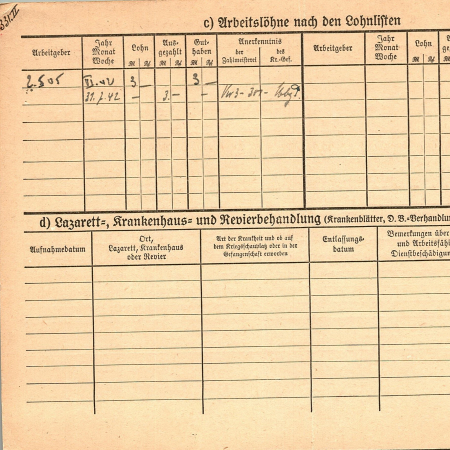 c) Arbeitslöhne nach den Lohnlisten
Arbeitgeber
Jahr
Monat
Woche
Lohn
Aus-
gezahlt
Gut-
haben
Anerkenntnis
der
Zahlmeisterei
des
Kr.-Gef.
Arbeitgeber
Jahr
Monat
Woche
Lohn
VI. 42
3 –
3 –
31. 7. 42
3. –
d) Lazarett-, Krankenhaus- und Revierbehandlung (Krankenblätter, D. B.-Verhandlu
Aufnahmedatum
Ort,
Lazarett, Krankenhaus
oder Revier
Art der Krankheit und ob auf
dem Kriegsschauplatz oder in der
Gefangenschaft erworben
Entlassungs-
datum
Bemerkungen über
und Arbeitsfäh
Dienstbeschädigun